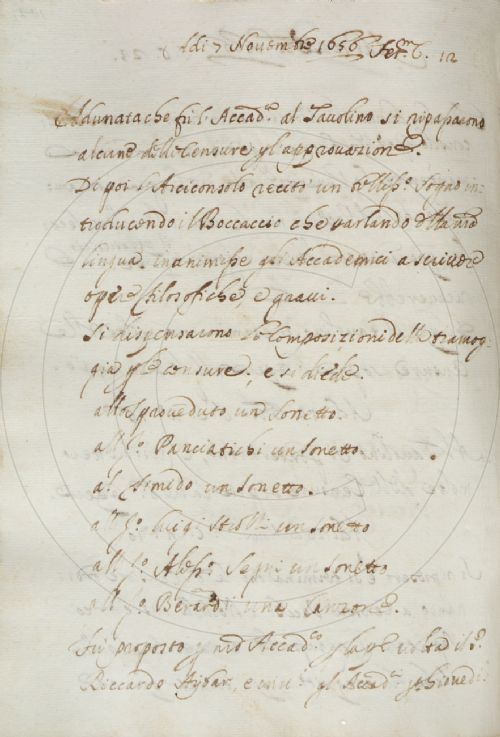 Adi 7 Novembre 1656
12
Adunata che fu l'Accad.a al Tavolino si ripassarono
alcune delle Censure p l'approvazione.
Di poi l'Arciconsolo recitò un bellis.o sogno in-
troducendo il Boccaccio che parlando della nra
lingua inanimisse gli Accademici a scrivere
opere filosofiche, e gravi.
Si dispensarono le Composizioni della tramog-
gia p le censure, e si diede
all' Sprovveduto un sonetto.
all S.r Panciatichi un sonetto.
al un sonetto.
all S.r luigi Strozzi un sonetto
all S.r Aless.o Segni un sonetto
all S.r Berardi una canzone.
Fu proposto p nro Accad.co p la p.a volta il S.r
Riccardo e p Giovedì